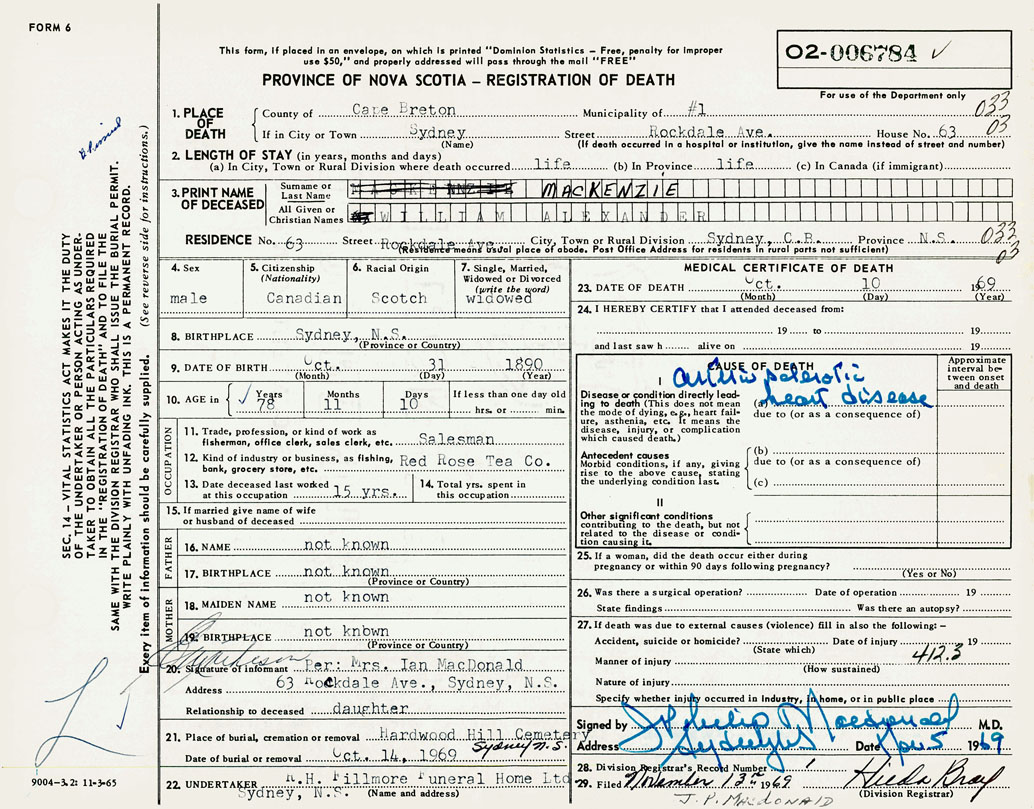 FORM 6
This form, if placed in an envelope, on which is printed "Dominion Statistics – Free, penalty for improper
use $50," and properly addressed will pass through the mail "FREE"
PROVINCE OF NOVA SCOTIA – REGISTRATION OF DEATH
02-006784 ✓
For use of the Department only
1. PLACE OF DEATH
County of Cape Breton Municipality of #1 033
If in City or Town Sydney Street Rockdale Ave. House No. 63 03
(Name) (If death occurred in a hospital or institution, give the name instead of street and number)
2. LENGTH OF STAY (in years, months and days)
(a) In City, Town or Rural Division where death occurred life (b) In Province life (c) In Canada (if immigrant)
3. PRINT NAME OF DECEASED
Surname or Last Name MACKENZIE
All Given or Christian Names WILLIAM ALEXANDER
RESIDENCE No. 63 Street Rockdale Ave. City, Town or Rural Division Sydney, C.B. Province N.S. 033
(Residence means usual place of abode. Post Office Address for residents in rural parts not sufficient) 03
4. Sex
male
5. Citizenship
(Nationality)
Canadian
6. Racial Origin
Scotch
7. Single, Married,
Widowed or Divorced
(write the word)
widowed
8. BIRTHPLACE Sydney, N.S.
(Province or Country)
9. DATE OF BIRTH Oct. 31 1890
(Month) (Day) (Year)
10. AGE in ✓ Years Months Days If less than one day old
78 11 10 hrs. or min.
OCCUPATION
11. Trade, profession, or kind of work as
fisherman, office clerk, sales clerk, etc. Salesman
12. Kind of industry or business, as fishing,
bank, grocery store, etc. Red Rose Tea Co.
13. Date deceased last worked
at this occupation 15 yrs.
14. Total yrs. spent in
this occupation
15. If married give name of wife
or husband of deceased
FATHER
16. NAME not known
17. BIRTHPLACE not known
(Province or Country)
MOTHER
18. MAIDEN NAME not known
19. BIRTHPLACE not known
(Province or Country)
20. Signature of informant Per: Mrs. Ian MacDonald
Address 63 Rockdale Ave., Sydney, N.S.
Relationship to deceased daughter
21. Place of burial, cremation or removal Hardwood Hill Cemetery
Sydney N.S.
Date of burial or removal Oct. 14, 1969
22. UNDERTAKER A.H. Fillmore Funeral Home Ltd
Sydney, N.S. (Name and address)
MEDICAL CERTIFICATE OF DEATH
23. DATE OF DEATH Oct. 10 1969
(Month) (Day) (Year)
24. I HEREBY CERTIFY that I attended deceased from:
19 to 19
and last saw h alive on 19
CAUSE OF DEATH
Approximate
interval be-
tween onset
and death
I
Disease or condition directly lead-
ing to death (This does not mean
the mode of dying, e.g., heart fail-
ure, asthenia, etc. It means the
disease, injury, or complication
which caused death.)
(a) heart disease
due to (or as a consequence of)
Antecedent causes
Morbid conditions, if any, giving
rise to the above cause, stating
the underlying condition last.
(b)
due to (or as a consequence of)
(c)
II
Other significant conditions
contributing to the death, but not
related to the disease or condi-
tion causing it.
25. If a woman, did the death occur either during
pregnancy or within 90 days following pregnancy?
(Yes or No)
26. Was there a surgical operation? Date of operation 19
State findings Was there an autopsy?
27. If death was due to external causes (violence) fill in also the following:–
Accident, suicide or homicide? Date of injury 19
(State which) 412.3
Manner of injury
(How sustained)
Nature of injury
Specify whether injury occurred in Industry, in home, or in public place
Signed by Macdonald M.D.
Address Sydney NS Date Nov 5 1969
28. Division Registrar's Record Number
29. Filed November 13 1969
(Division Registrar)
J. P. MACDONALD
SEC. 14 – VITAL STATISTICS ACT MAKES IT THE DUTY
OF THE UNDERTAKER OR PERSON ACTING AS UNDER-
TAKER TO OBTAIN ALL THE PARTICULARS REQUIRED
IN THE "REGISTRATION OF DEATH" AND TO FILE THE
SAME WITH THE DIVISION REGISTRAR WHO SHALL ISSUE THE BURIAL PERMIT.
WRITE PLAINLY WITH UNFADING INK. THIS IS A PERMANENT RECORD.
Every item of information should be carefully supplied. (See reverse side for instructions.)
9004-3.2: 11-3-65